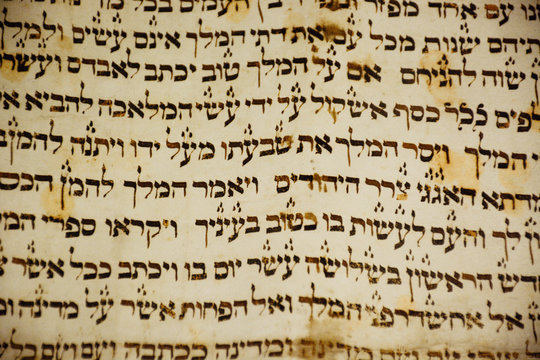 נו עם אחד מפזר העמים בכל
תיהם שנות מכל עם ואת דתי המלך אינם עשים ולמלך
שוה להניחם אם על המלך טוב יכתב לאבדם ועשר
לפים ככר כסף אשקול על ידי עשי המלאכה להביא א
י המלך ויסר המלך את טבעתו מעל ידו ויתנה להמן
מדתא האגגי צרר היהודים ויאמר המלך להמן הכס
ן לך והעם לעשות בו כטוב בעיניך ויקראו ספרי המ
דש הראשון בשלושה עשר יום בו ויכתב ככל אשר
ן אל אחשדרפני המלך ואל הפחות אשר על מדינה ומ
ומדינה ככתבה ועם ועם